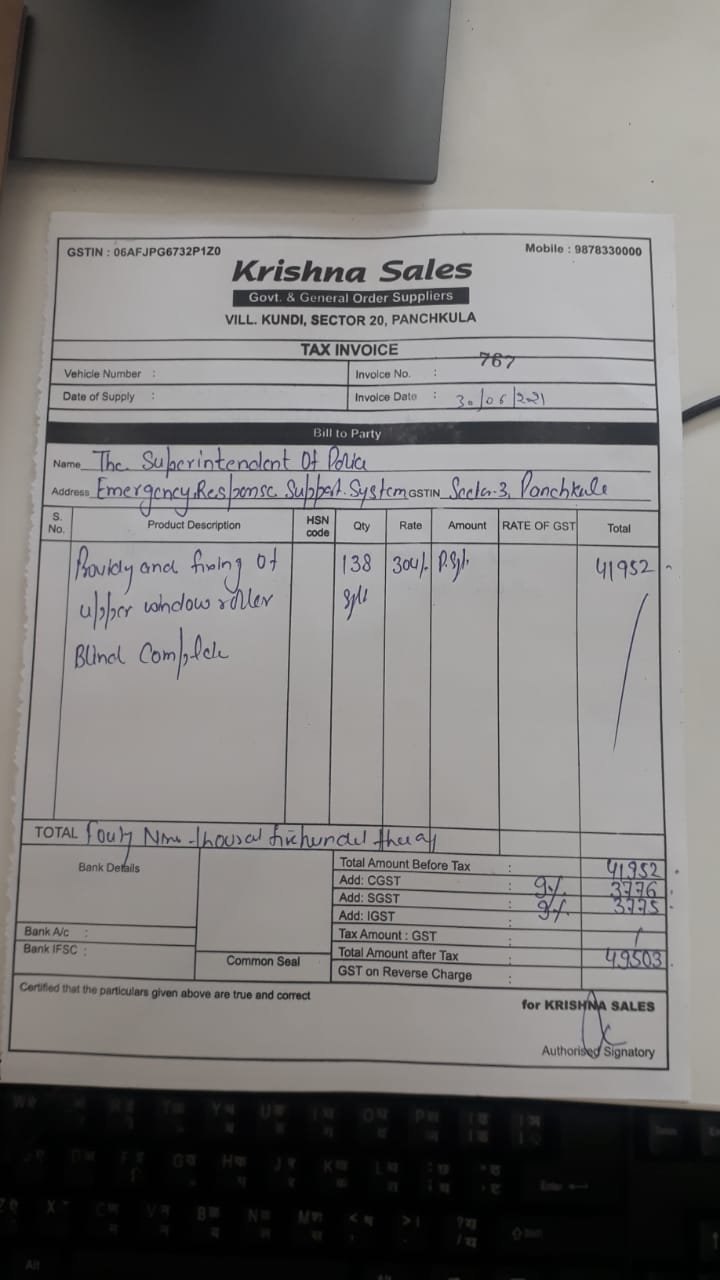 GSTIN : 06AFJPG6732P1Z0 Mobile : 9878330000
Krishna Sales
Govt. & General Order Suppliers
VILL. KUNDI, SECTOR 20, PANCHKULA
TAX INVOICE
Vehicle Number : Invoice No. : 767
Date of Supply : Invoice Date : 30/06/2021
Bill to Party
Name The Superintendent Of Police
Address Emergency Response Support System GSTIN Sector-3, Panchkula
S. No. Product Description HSN code Qty Rate Amount RATE OF GST Total
and fixing Of 138 304/- P.Sft. 41952
upper window roller Sft
Blind Complete
TOTAL Fourty Nine thousand
Bank Details Total Amount Before Tax : 41952
Add: CGST : 9% 3776
Add: SGST : 9% 3775
Add: IGST
Bank A/c : Tax Amount : GST
Bank IFSC : Common Seal Total Amount after Tax : 49503
GST on Reverse Charge :
Certified that the particulars given above are true and correct
for KRISHNA SALES
Authorised Signatory